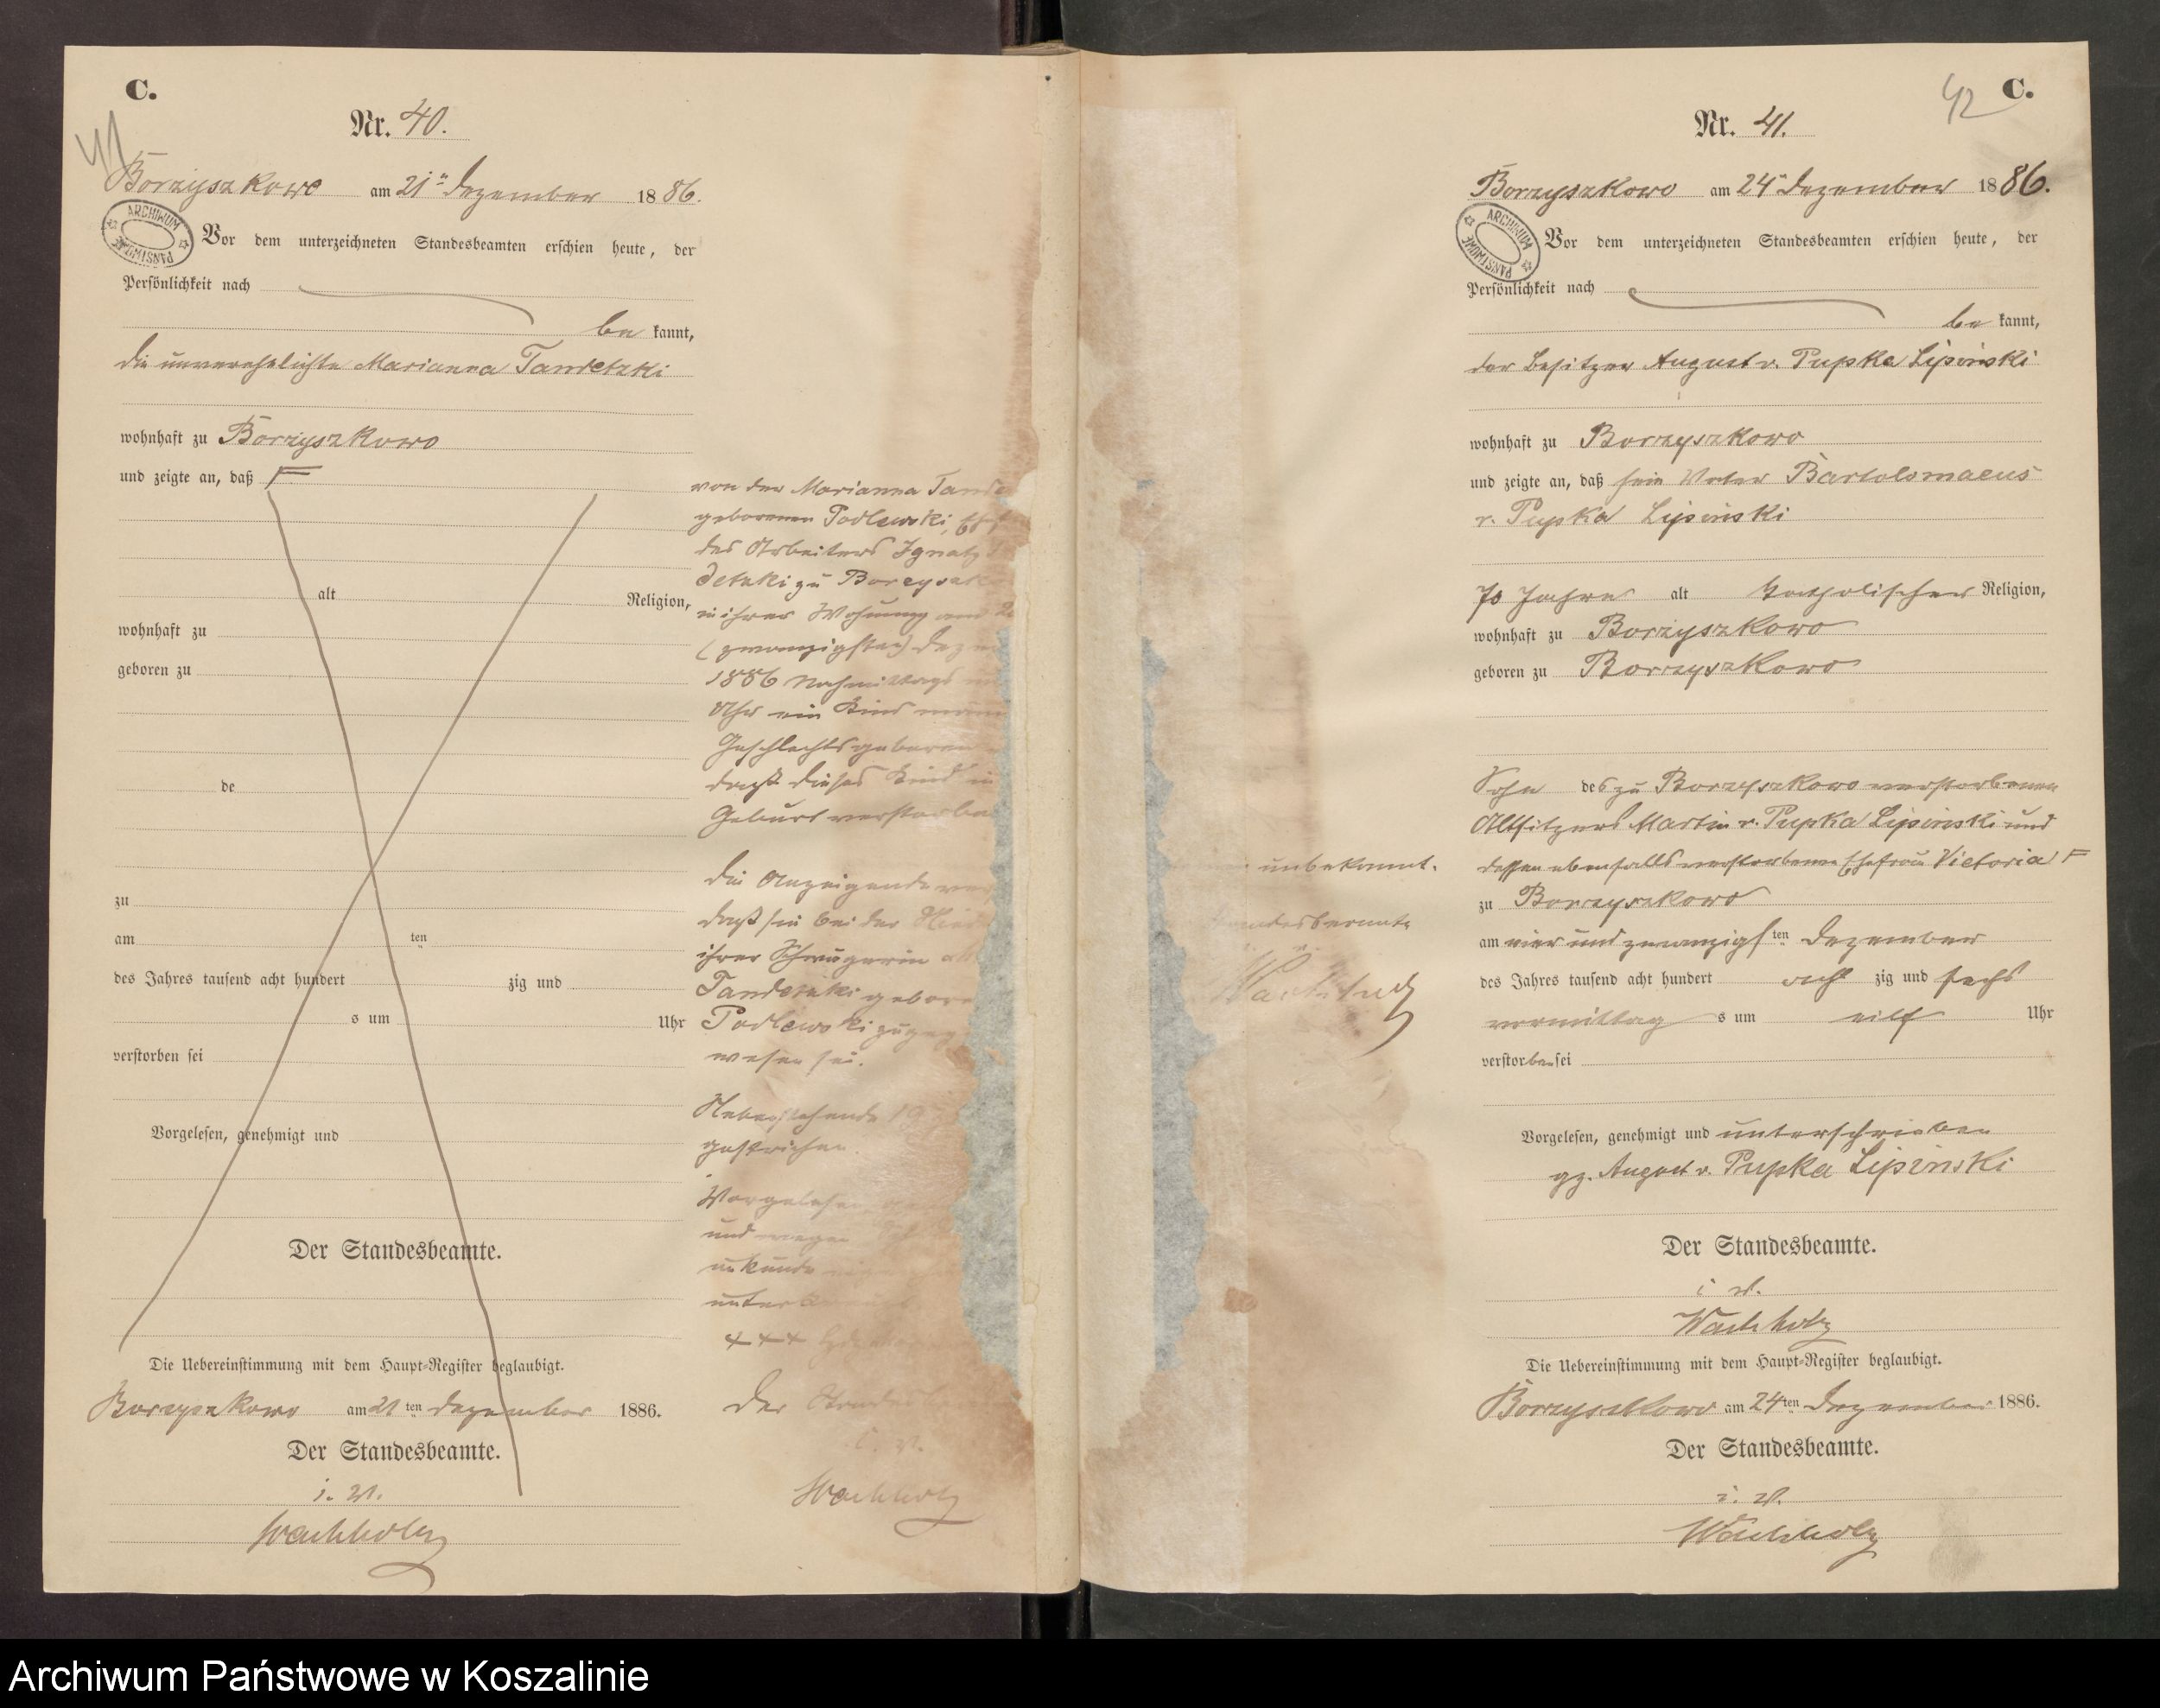 C.
41
Nr. 40.
Borzyszkowo am 21ten Dezember 1886.
ARCHIWUM PAŃSTWOWE
Vor dem unterzeichneten Standesbeamten erschien heute, der
Persönlichkeit nach
be kannt,
die unverehelichte Marianna Tandetzki
wohnhaft zu Borzyszkowo
und zeigte an, daß
alt Religion,
wohnhaft zu
geboren zu
de
zu
am ten
des Jahres tausend acht hundert zig und
s um Uhr
verstorben sei
Vorgelesen, genehmigt und
Der Standesbeamte.
Die Uebereinstimmung mit dem Haupt-Register beglaubigt.
Borzyszkowo am 21 ten Dezember 1886.
Der Standesbeamte.
i. V.
Wachholz
von der Marianna
geborenen Podlewski,
des Arbeiters Ignatz
detzki zu
in ihrer Wohnung am
(zwanzigsten)
1886 Nachmittags
Uhr ein Kind
Geschlechts geboren
daß dieses Kind in
Geburt verstorben
Die Anzeigende
daß sie bei der
ihrer Schwägerin
Tandetzki
Podlewski
wesen sei.
Nebenstehende
gestrichen.
Vorgelesen,
und wegen
unkunde
unter
+++
Der
i. V.
Wachholz
unbekannt.
Wachholz
42 C.
Nr. 41.
Borzyszkowo am 24ten Dezember 1886.
ARCHIWUM PAŃSTWOWE
Vor dem unterzeichneten Standesbeamten erschien heute, der
Persönlichkeit nach
be kannt,
der Besitzer August v. Pupka Lipinski
wohnhaft zu Borzyszkowo
und zeigte an, daß sein Vater Bartolomaeus
v. Pupka Lipinski
70 Jahre alt katholischer Religion,
wohnhaft zu Borzyszkowo
geboren zu Borzyszkowo
Sohn des zu Borzyszkowo verstorbenen
Altsitzers Martin v. Pupka Lipinski und
dessen ebenfalls verstorbenen Ehefrau Victoria
zu Borzyszkowo
am vier und zwanzigsten Dezember
des Jahres tausend acht hundert acht zig und sechs
vormittag s um eilf Uhr
verstorben sei
Vorgelesen, genehmigt und unterschrieben
gz. August v. Pupka Lipinski
Der Standesbeamte.
i V.
Wachholz
Die Uebereinstimmung mit dem Haupt-Register beglaubigt.
Borzyszkowo am 24ten Dezember 1886.
Der Standesbeamte.
i. V.
Wachholz
Archiwum Państwowe w Koszalinie